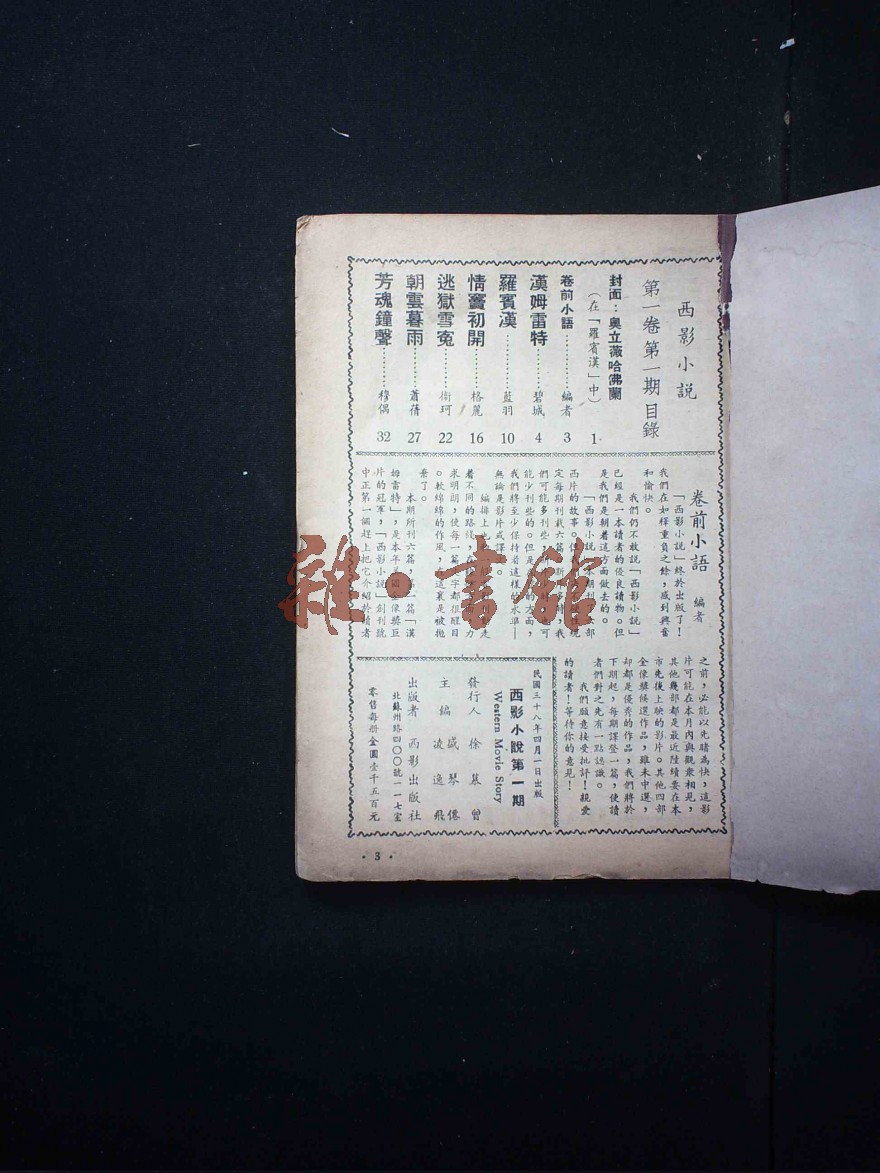 西影小說
第一卷第一期目錄
封面：奧立薇哈佛蘭
（在「羅賓漢」中）　1
卷前小語………編者　3
漢姆雷特………碧城　4
羅賓漢………藍羽　10
情竇初開………格麗　16
逃獄雪冤………衞珂　22
朝雲暮雨………蕭蒨　27
芳魂鐘聲………穆偶　32
卷前小語　編者
「西影小說」終於出版了！
我們在如釋重負之餘，感到興奮
和愉快。
我們仍不敢說「西影小說」
已經是一本讀者的優良讀物。但
是我們是朝着這方面做去的。
「西影小說」本期刊了六部
西片的故事。但
定每期刊載六篇，我
們可能多刊些，也可
能少刊些的。但是方面，
我們將至少保持着這樣的水準——
無論是影片或譯文。
編排上也走
着不同的路線，力
求明朗，使每一篇文字都很醒目
。軟綿綿的作風，在這裏是被拋
棄了。
本期所刊六篇，一篇「漢
姆雷特」，是本年美國金像獎巨
片的冠軍，「西影小說」創刊號
中正第一個趕上把它介紹於讀者
之前，必能以先睹為快，這影
片可能在本月內與觀衆相見，
其他幾部都是最近陸續要在本
市先後上映的影片。其他四部
金像獎候選作品，雖未中選，
却都是優秀的作品，我們將於
下期起，每期譯登一篇，使讀
者們對之先有一點認識。
我們願意接受批評！親愛
的讀者！等待你的意見！
民國三十八年四月一日出版
西影小說第一期
Western Movie Story
發行人　徐慕曾
主編　盛琴僊
凌逸飛
出版者　西影出版社
北蘇州路四〇〇號一一七室
零售每册金圓壹千五百元
·3·
雜·書館